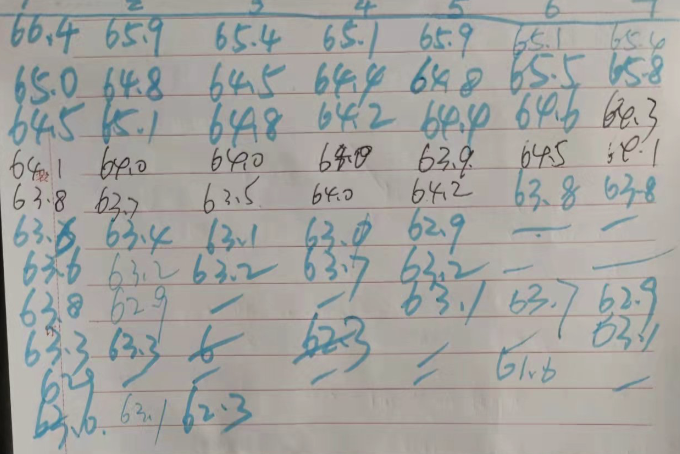 1 2 3 4 5 6 7
66.4 65.9 65.4 65.1 65.9 65.1 65.4
65.0 64.8 64.5 64.4 64.8 65.5 65.8
64.5 65.1 64.8 64.2 64.4 64.6 64.3
64.1 64.0 64.0 63.9 64.5 64.1
63.8 63.7 63.5 64.0 64.2 63.8 63.8
63.4 63.1 63.0 62.9 — —
63.6 63.2 63.2 63.7 63.2 — —
63.8 62.9 — — 63.1 63.7 62.9
63.3 63.3 62.3 — 63.1
62.9 — — — — 61.6 —
63.0. 63.1 62.3